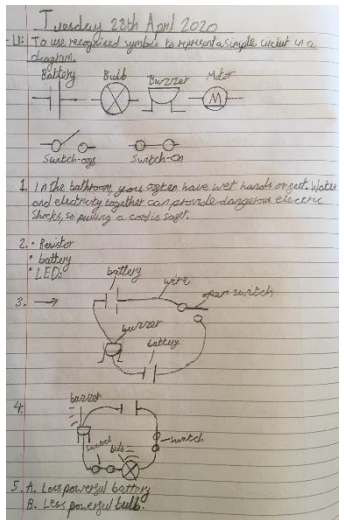 Tuesday 28th April 2020
-LI: To use recognised symbols to represent a simple circuit in a
diagram.
Battery Bulb Buzzer Motor
M
Switch-off Switch-on
1. In the bathroom, you often have wet hands or feet. Water
and electricity together can provide dangerous electric
shocks, so pulling a cord is safer.
2. • Resistor
• battery
• LED
battery
wire
open switch
3.
buzzer
battery
4.
buzzer
switch
bulb
5. A. Less powerful battery
B. Less powerful bulb.